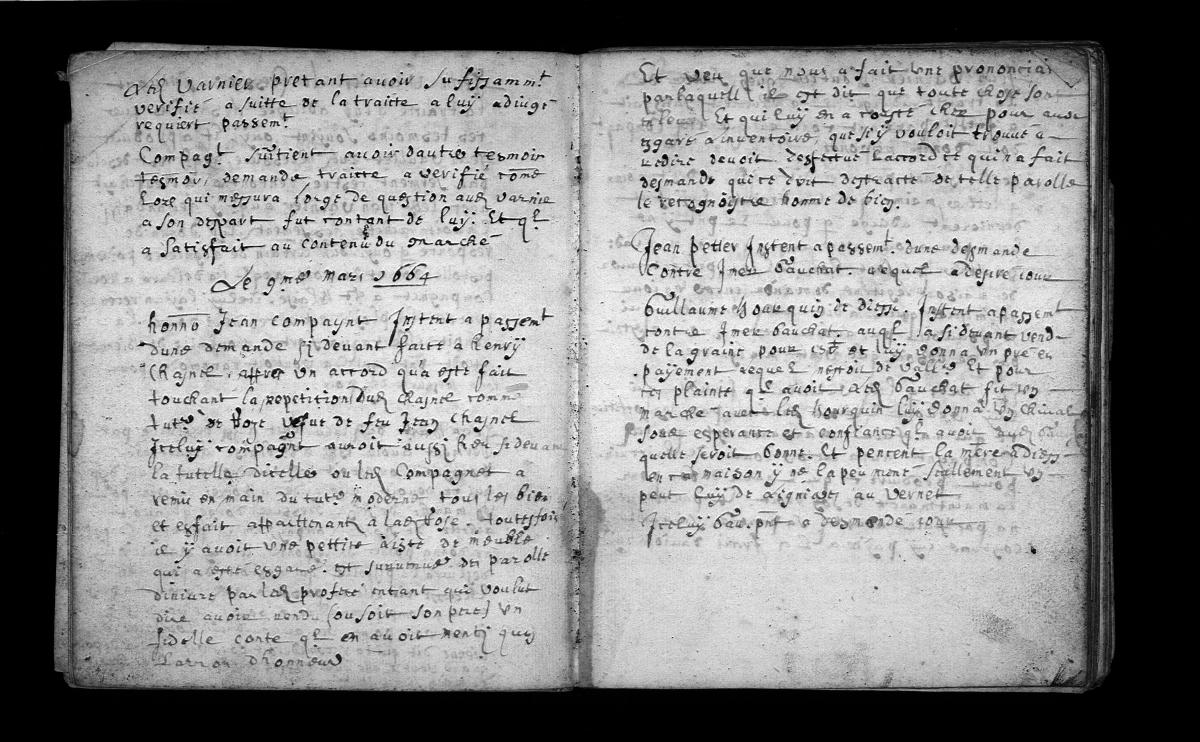 Led Varnier pretant avoir sufissammt
verifié a suitte de la traitte a luy adiugé
requiert passemt
Compagt sutient avoir dautre tesmoin
tesmoin, demande traitte a verifié come
Loze qui messura lorge de question aud varnie
a son despart fut contant de luy. Et ql
a satisfait au contenu du marché
Le 9me Mars 1664
honno Jean Compagnt Instent a passemt
dune demande sj devant faitte a henry
Chasnel, apres un accord qua este fait
touchant la repetition dud Chasnel comme
tutr de Roze vefve de feu Jean Chasnel
Iceluy Compagnt auroit aussi rcu sj devan
la tutelle dicelles ou led Compagnet a
remis en main du tutr moderne tous les bien
et esfait appartenant à lad Rose. toutesfois
il y avoit une pettite de meuble
qui a este esgaré. Est survenue des parolle
diniure par led profere entant qui voulut
dire avoir rendu (ou soit son pere) un
fidelle conte ql en avoit menty quy
Larron dhonneur
Et veu que nous a fait une prononcia
par laquell il est dit que toute chose son
Et qui luy en a couste chez pour avoir
esgaré a inventoire, que sy vouloit trouve a
redire devoit respectué laccord ce quj na fait
desmande qui ce doit destracté de telle parolle
le recognoistre homme de bien
Jean petter Instent a passemt dune desmande
Contre Imer Gauchat. Lequel a desire iour
Guillaume Bourquin de diesse, Instent a passemt
contre Imer Gauchat, auql a sj devant vend
de la graine pour et luy donna un pre en
payement lequel nestoit de valle Et pour
plainte ql avoit led Gauchat fit un
marche avec led Bourquin luy donna un chival
soue esperance et confiance ql avoit aud Gau
quelle seroit bonne. Et pencent la mere a diess
en sa maison y ne la peu mene seullement un
peut luy de au vernet
Iceluy Gau. pnt a desmande iour